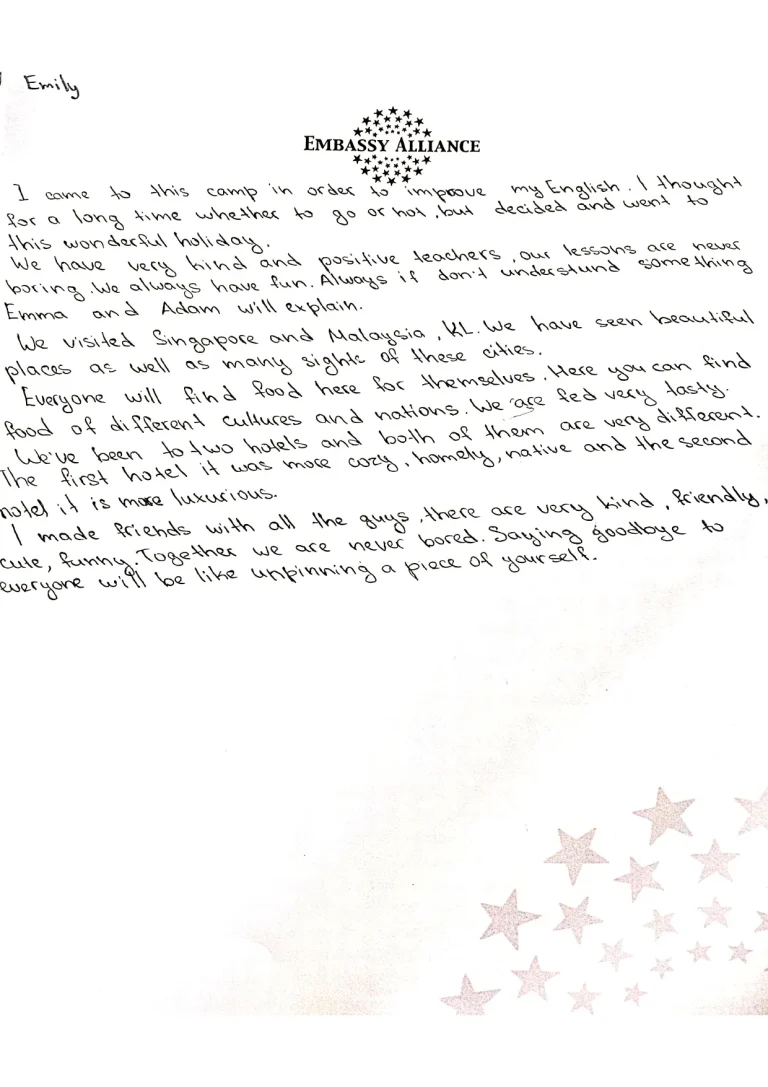 Emily
EMBASSY ALLIANCE
I came to this camp in order to improve my English. I thought
for a long time whether to go or not, but decided and went to
this wonderful holiday.
We have very kind and positive teachers, our lessons are never
boring. We always have fun. Always if don't understund something
Emma and Adam will explain.
We visited Singapore and Malaysia, KL. We have seen beautiful
places as well as many sights of these cities.
Everyone will find food here for themselves. Here you can find
food of different cultures and nations. We are fed very tasty.
We've been to two hotels and both of them are very different.
The first hotel it was more cozy, homely, native and the second
hotel it is more luxurious.
I made friends with all the guys, there are very kind, friendly,
cute, funny. Together we are never bored. Saying goodbye to
everyone will be like unpinning a piece of yourself.